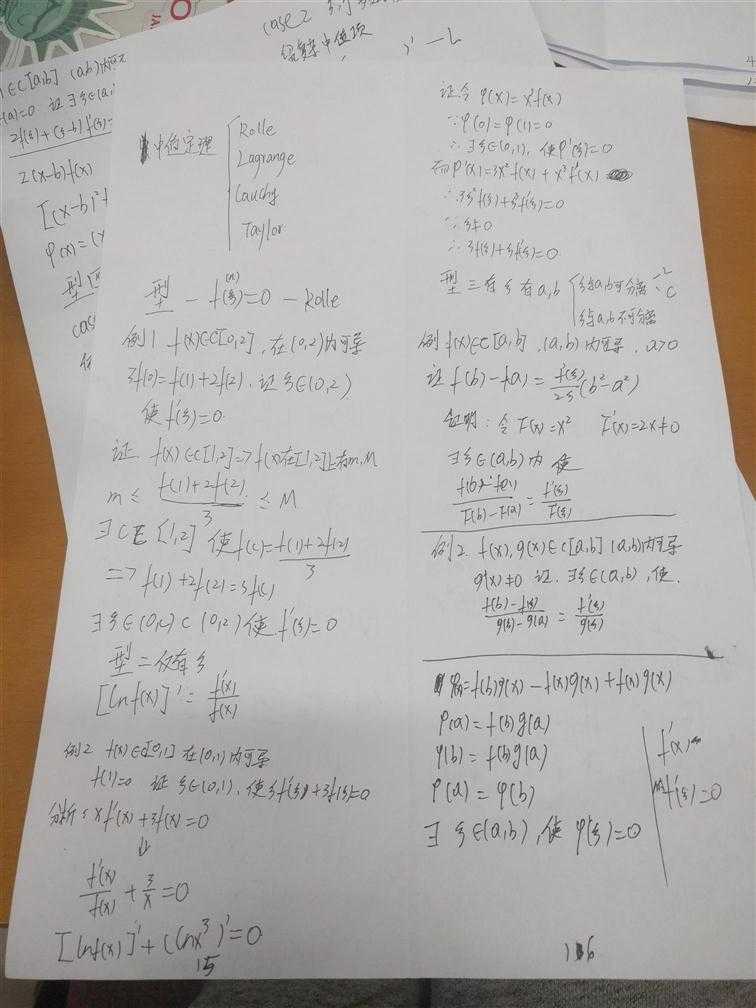 case 2
中值定理 { Rolle
Lagrange
Cauchy
Taylor
型一 f⁽ⁿ⁾(ξ)=0 — Rolle
例1 f(x)∈C[0,2],在(0,2)内可导
3f(0)=f(1)+2f(2). 证ξ∈(0,2)
使f'(ξ)=0.
证 f(x)∈C[1,2]=>f(x)在[1,2]上有m,M
m≤ (f(1)+2f(2))/3 ≤M
∃C∈[1,2] 使f(c)=(f(1)+2f(2))/3
=> f(1)+2f(2)=3f(c)
∃ξ∈(0,c)⊂(0,2)使f'(ξ)=0
型二 仅有ξ
[lnf(x)]'=f'(x)/f(x)
例2 f(x)∈C[0,1]在(0,1)内可导
f(1)=0 证ξ∈(0,1),使ξf'(ξ)+3f(ξ)=0
分析: xf'(x)+3f(x)=0
⇓
f'(x)/f(x)+3/x=0
[lnf(x)]'+(lnx³)'=0
15
证令φ(x)=x³f(x)
∵φ(0)=φ(1)=0
∴∃ξ∈(0,1),使φ'(ξ)=0
而φ'(x)=3x²f(x)+x³f'(x)
∴3ξ²f(ξ)+ξ³f'(ξ)=0
∵ξ≠0
∴3f(ξ)+ξf'(ξ)=0
型三 有ξ有a,b { ξ与a,b可分离
ξ与a,b不可分离
例1 f(x)∈C[a,b],(a,b)内可导,a>0
证 f(b)-f(a)=f'(ξ)/2ξ (b²-a²)
证明:令F(x)=x² F'(x)=2x≠0
∃ξ∈(a,b)内 使
(f(b)-f(a))/(F(b)-F(a))=f'(ξ)/F'(ξ)
例2. f(x),g(x)∈C[a,b] (a,b)内可导
g'(x)≠0 证.∃ξ∈(a,b),使.
(f(b)-f(ξ))/(g(ξ)-g(a))=f'(ξ)/g'(ξ)
=f(b)g(x)-f(x)g(x)+f(x)g(a)
φ(a)=f(b)g(a)
φ(b)=f(b)g(a)
φ(a)=φ(b)
∃ξ∈(a,b),使φ'(ξ)=0
f'(x)
f'(ξ)=0
16